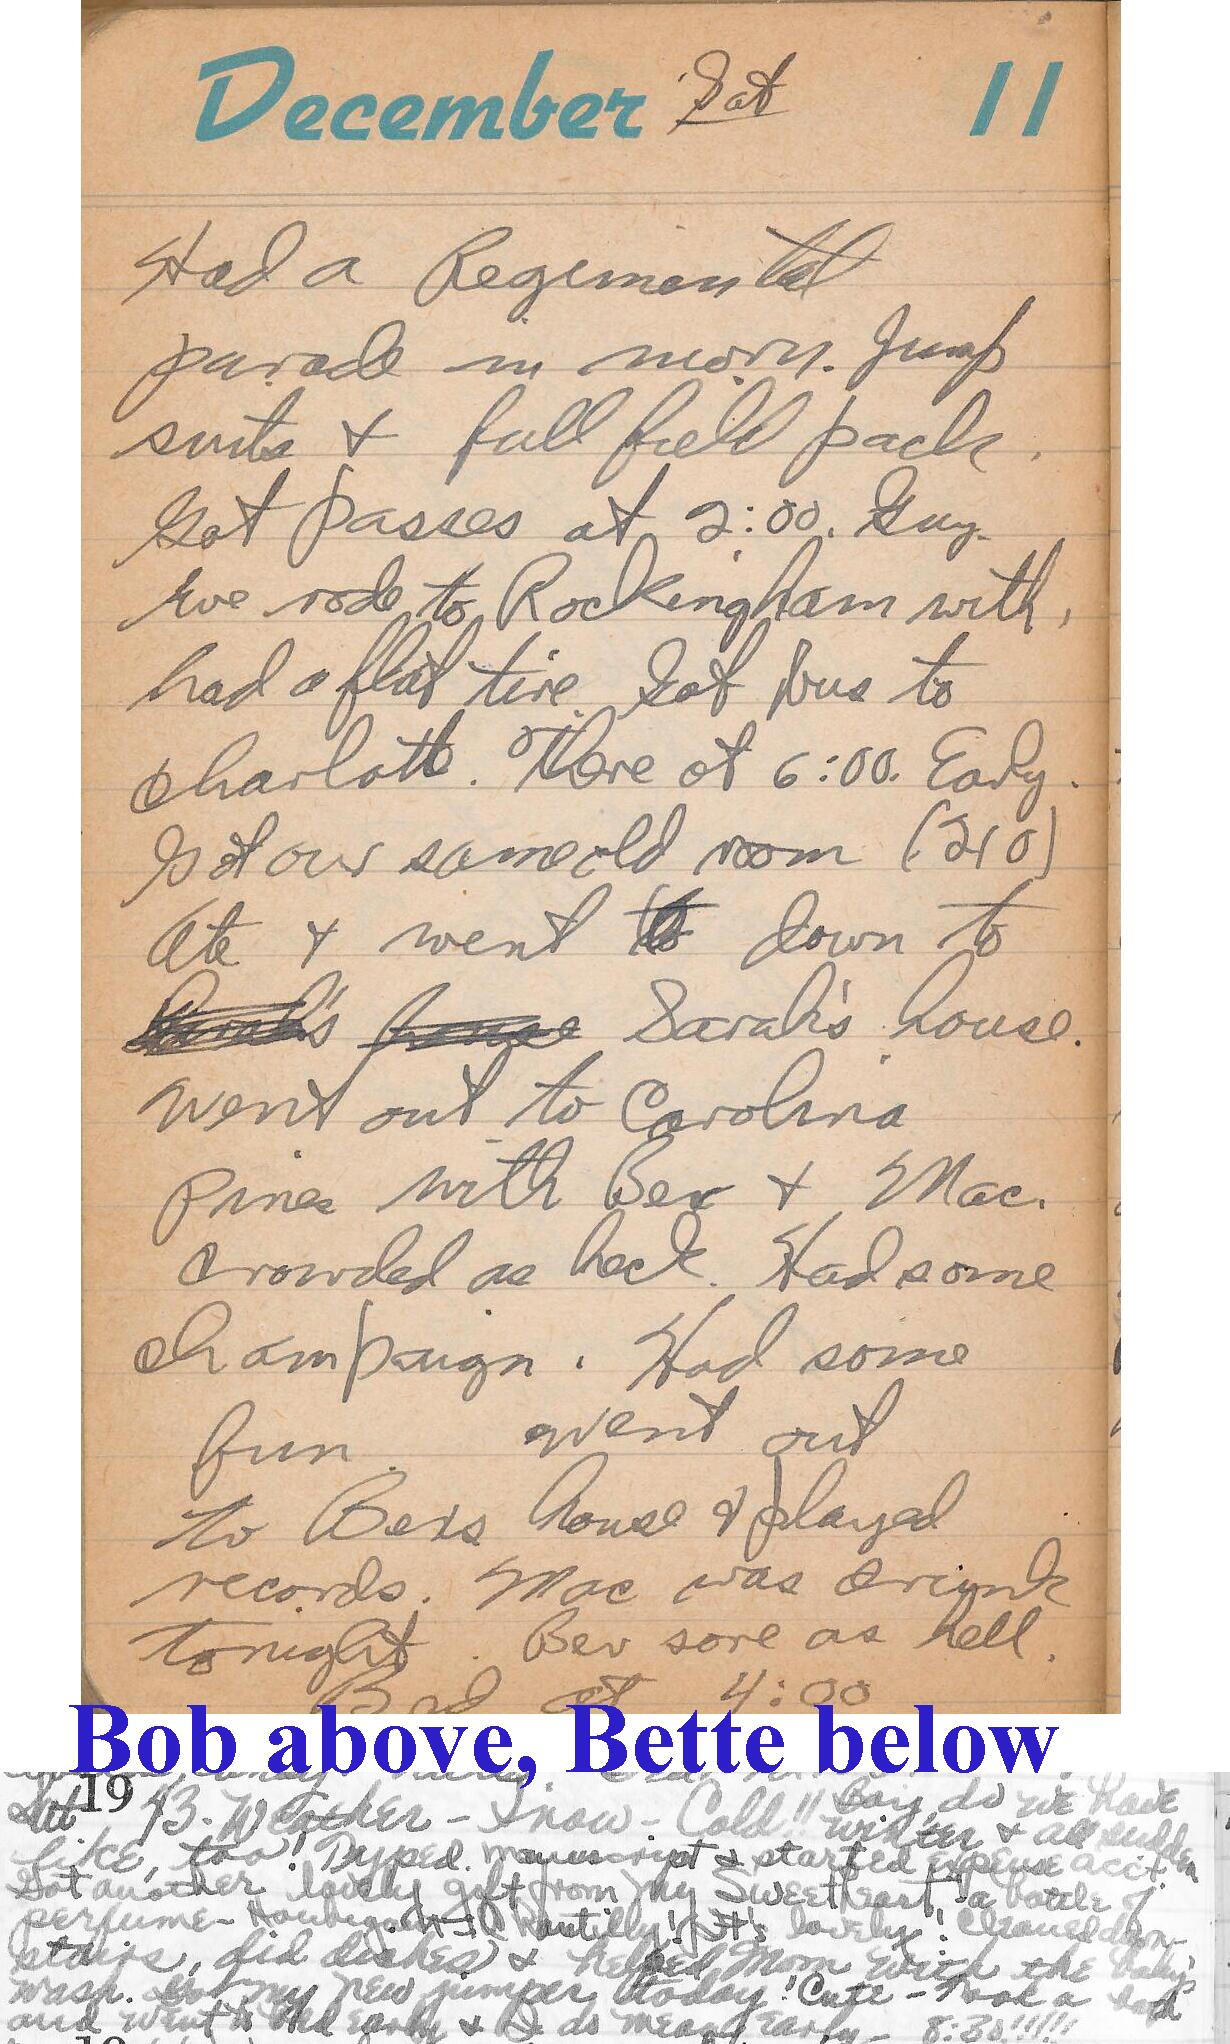 December Sat 11
Had a Regimental
parade in morn. Jump
suits & full field pack.
Got passes at 2:00. Guy
we rode to Rockingham with,
had a flat tire. Got bus to
Charlotte. There at 6:00. Early.
Got our same old room (210)
Ate & went down to
Sarah's house.
Went out to Carolina
Pines with Bev & Mac.
Crowded as heck. Had some
champaign. Had some
fun. Went out
to Bev's house & played
records. Mac was drunk
tonight. Bev sore as hell.
Bed at 4:00
Bob above, Bette below
19
Sat 43. Weather - Snow - Cold!! Boy, do we have
winter & all sudden
like, too! Typed manuscript & started expense acct.
Got another lovely gift from my Sweetheart, a bottle of
perfume - Houbigant's Chantilly! It's lovely! Cleaned down-
stairs, did dishes & helped Mom with the baby's
wash. Got my new jumper today! Cute - Took a bath
and went to bed early & I do mean early - 8:30!!!!!
19